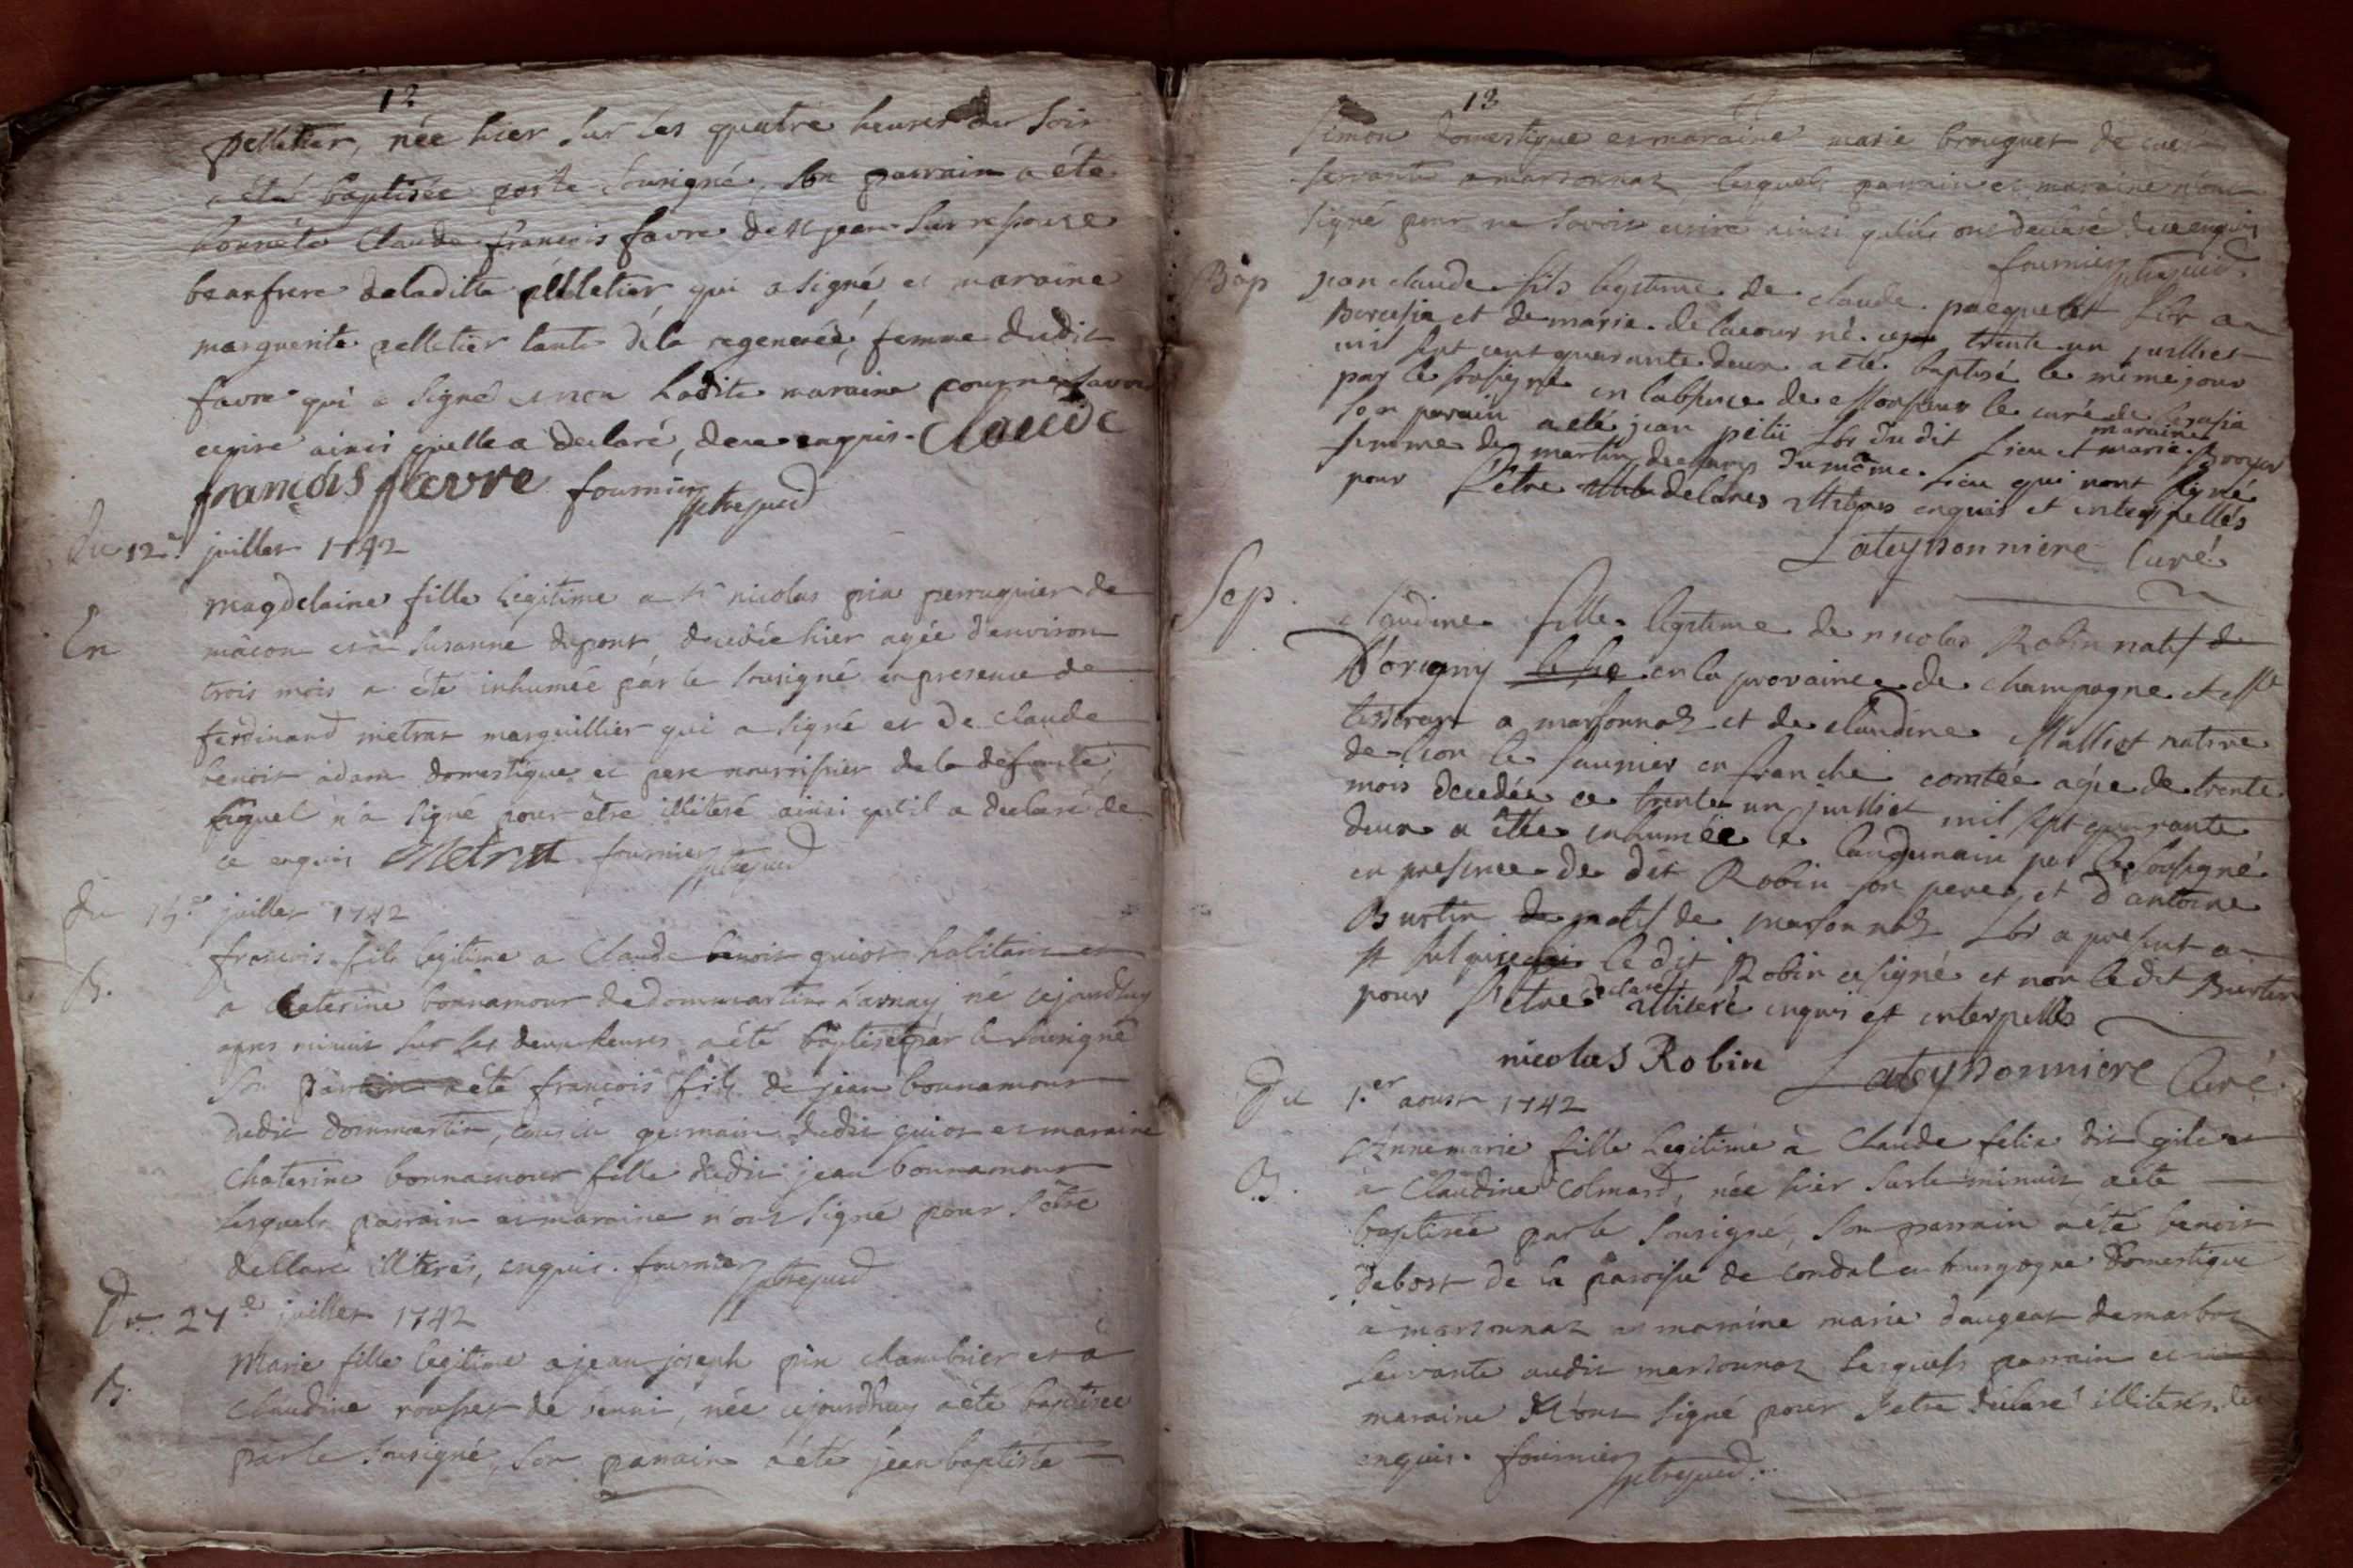 12
pelletier, née hier sur les quatre heures du soir
a été baptisée par le sousigné, son parrain a été
honnête Claude françois favre de st jean sur resouse
beaufrere de laditte pelletier qui a signé et maraine
marguerite pelletier tante de la regenerée, femme dudit
favre qui a signé et non ladite maraine pour ne savoir
ecrire ainsi quelle a declaré, de ce enquis. Claude
françois favre fournier
du 12e juillet 1742
En
Magdelaine fille legitime a sr nicolas pria perruquier de
mâcon et a susanne dupont, decedée hier agée d'environ
trois mois a été inhumée par le sousigné en presence de
ferdinand metrat marguillier qui a signé et de Claude
benoit adam domestique et pere nourrissier de la defunte,
lequel n'a signé pour être illiteré ainsi qu'il a declaré de
ce enquis Metrat fournier
du juillet 1742
B.
françois fils legitime a Claude benoit guiot habitant et
a Caterine bonnamour de dommartin Larnay né cejourdhuy
apres minuit sur les deux heures a été baptisé par le sousigné
son parrain a été françois fils de jean bonnamour
dudit dommartin, cousin germain dudit guiot et maraine
Chaterine bonnamour fille dudit jean bonnamour
lesquels parrain et maraine n'ont signé pour s'être
dellaré illiterés, enquis. fournier
Du 27e juillet 1742
B.
Marie fille legitime a jean joseph pin chambrier et a
Claudine rousset de, née cejourdhuy a été baptisée
par le sousigné, son parrain a été jean baptiste
13
simon domestique et maraine marie brouquet de
servante a marsonnaz lesquels parrain et maraine n'ont
signé pour ne savoir ecrire ainsi qu'ils ont declaré de ce enquis
fournier
Bap
jean claude fils legitime de claude pacquelet lbr a
Bercesia et de marie delacour né ce trente un juilliet
mil sept cent quarante deux a eté baptisé le mème jour
par le sousigné en labsence de Monsieur le curé de
son parain a eté jean petit lbr du dit lieu et maraine marie Broyer
femme de martin du même lieu qui nont signé
pour s'etre declares illiteres enquis et interpellés
Lateyssonniere Curé
Sep.
Claudine fille legitime de nicolas Robin natif de
D'origny en la provaince de champagne et
tisserant a marsonnaz et de claudine Malliot native
de lion le saunier en franche comtée agée de trente
mois decedée ce trente un juilliet mil sept quarante
deux a étté inhumée le landemain par le sousigné
en presence de dit Robin son pere et d'antoine
Burtin natif de marsonnaz lbr a present a
st sulpice le dit Robin a signé et non le dit Burtin
pour s'etre declaré illiteré enquis et interpellé
nicolas Robin Lateyssonniere Curé
Du 1.er aoust 1742
B.
Annemarie fille legitime à Claude felix dit gilet et
à Claudine Colmard, née hier sur le minuit, a été
baptisée par le sousigné, son parrain a été benoit
debost de la paroisse de condal en bourgogne domestique
a marsonnaz et maraine marie daugeat de marboz
servante audit marsonnaz lesquels parrain et
maraine n'ont signé pour s'etre declaré illiterés, de ce
enquis. fournier